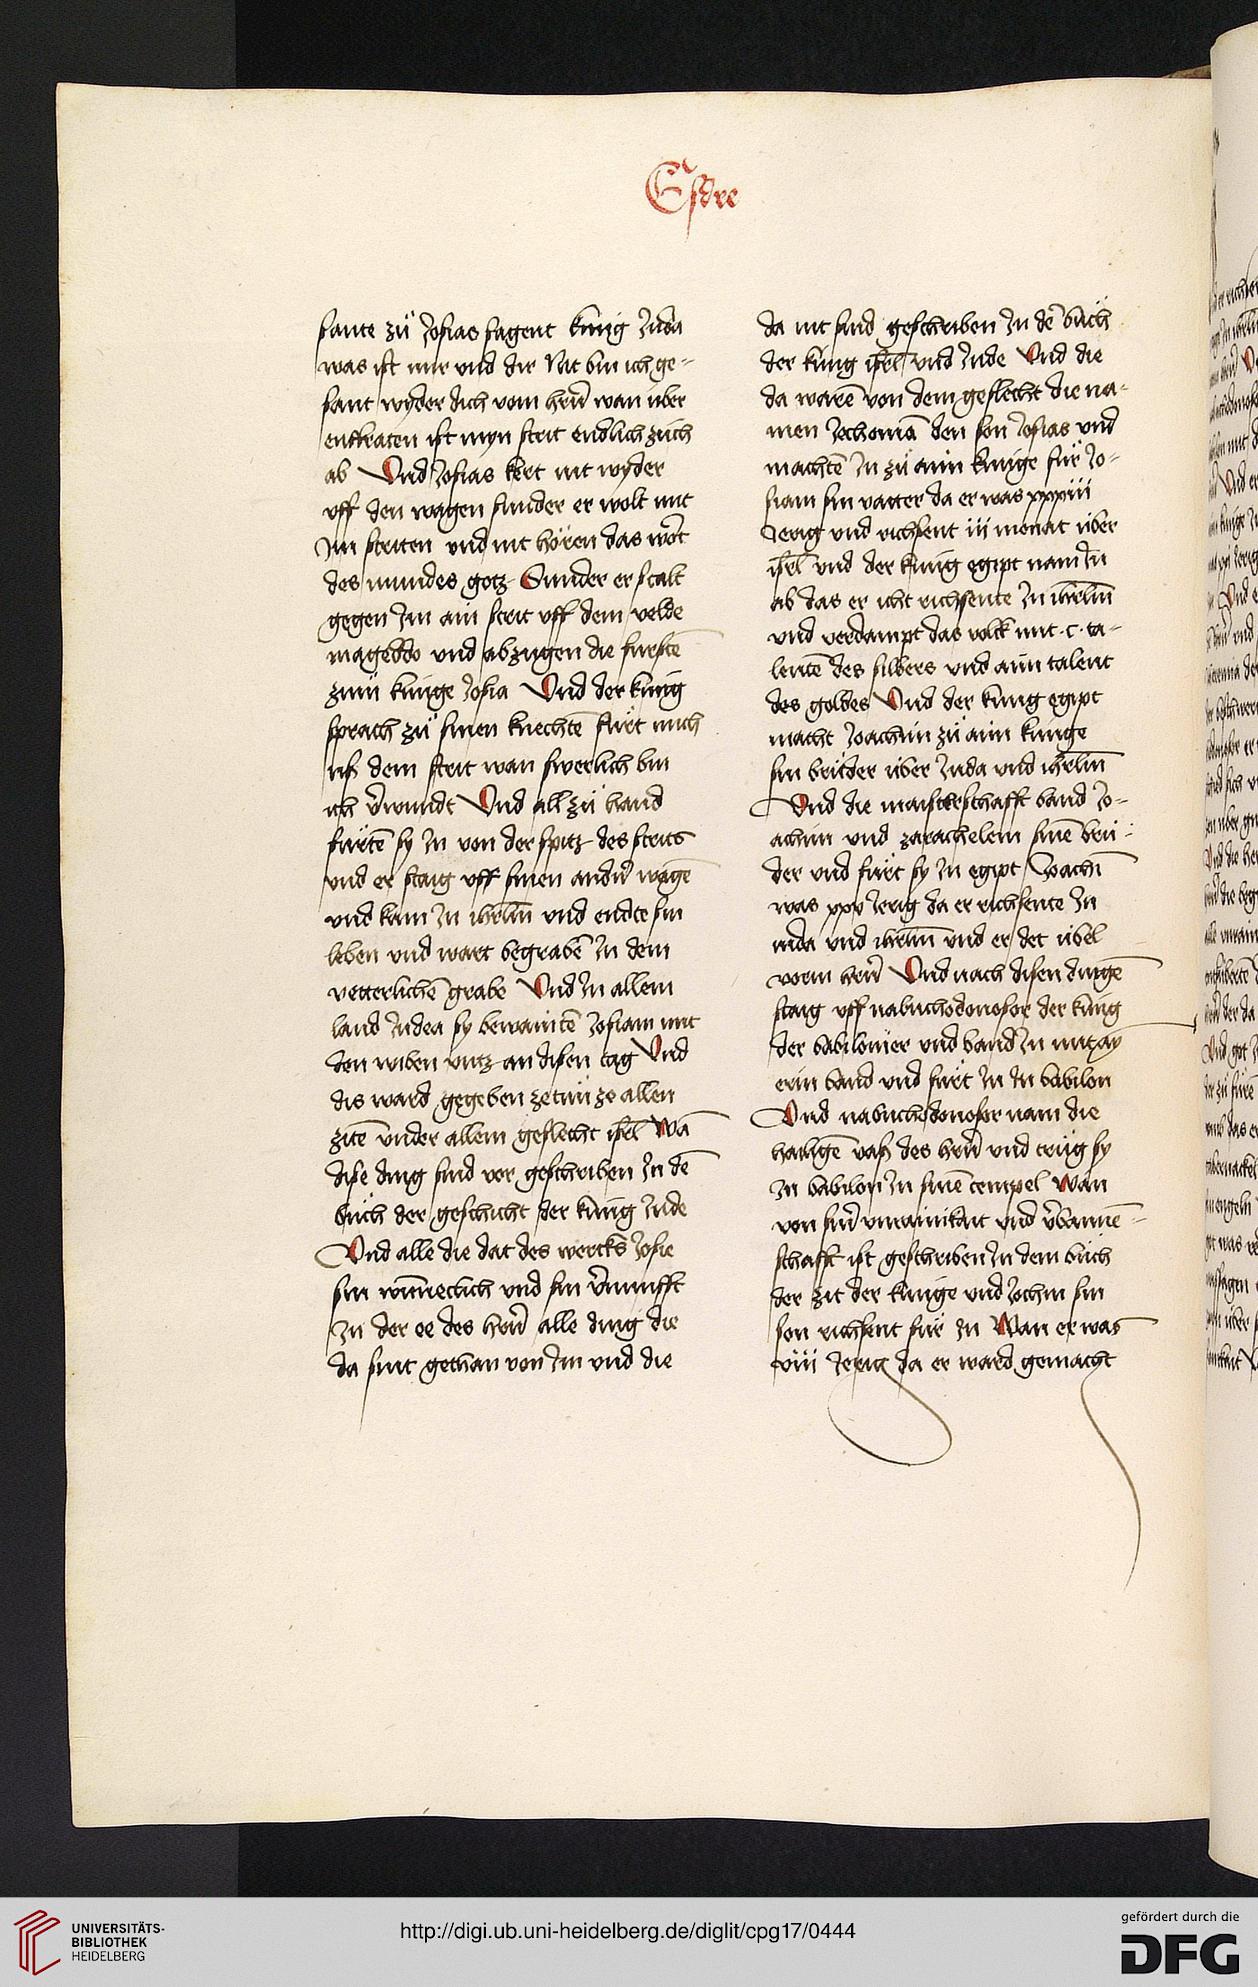 Esdre
sante zu̎ Josias sagent künig Juda
was ist mir vnd dir Nit bin ich ge-
sant wyder dich vom herr̄ wan über
enffraten ist myn strit endlich züch
ab Vnd Josias kert nit wyder
vff den wagen sunder er wolt mit
Im striten vnd nit hören das wort
des mundes gotz Sunder er stalt
gegen Im ain strit vff dem velde
mageddo vnd abzugen die fürstē
zum künge Josia Vnd der künig
sprach zu̎ sinen knechtē fürt mich
uss dem strit wan swerlich bin
ich v̄wundt Vnd all zu̎ hand
fürtē sy In von der spitz des strits
vnd er staig vff sinen andn̄ wagē
vnd kam In ihrlm̄ vnd endte sin
leben vnd wart begrabē In dem
vetterlichē grabe Vnd In allem
land Judea sy bewaintē Josiam mit
den wiben vntz an disen tag Vnd
dis ward gegeben ze tün ze allen
zitē vnder allem geslecht isrl̄ Wā
dise ding sind vor geschriben In dē
bu̎ch der geschicht der künig Jude
Vnd alle die dat des wercks Josie
sin wūneclich vnd sin v̄nunfft
In der ee des herr̄ alle ding die
da sint gethan von Im vnd die
da nit sind geschriben In dē bu̎ch
der küng isrl̄ vnd Jude Vnd die
da warē von dem geslecht die na-
men Jechoniā den son Josias vnd
machtē In zu̎ aim künige für Jo-
siam sin vatter da er was xxxiii
Jerig vnd richsent iii monat über
isrl̄ vnd der künig egipt nam In
ab das er icht richsente In ihrlm̄
vnd verdampt das volck mit ·c· ta-
lentē des silbers vnd aim talent
des goldes Vnd der küng egipt
macht Joachim zu̎ aim künge
sin bru̎der über Juda vnd ihrlm̄
Vnd die maisterschafft band Jo-
achim vnd zarachelem sinē bru̎-
der vnd fürt sy In egipt Joachī
was xxv Jerig da er richsente In
iuda vnd ihrlm̄ vnd er det übel
vorm herr̄ Vnd nach disen dingē
staig vff nabuchodonosor der küng
der babilonier vnd band In mit ay
erin band vnd fürt In In babilon
Vnd nabuchodonosor nam die
hailigē vass des herr̄ vnd tru̎g sy
In babilon In sinē tempel Wan
von sinr̄ vnrainikait vnd v̄bannē-
schafft ist geschriben In dem bu̎ch
der zit der künige vnd Jochim sin
son richsent für In Wan er was
viii Jerig da er ward gemacht
UNIVERSITÄTS-
BIBLIOTHEK
HEIDELBERG
http://digi.ub.uni-heidelberg.de/diglit/cpg17/0444
gefördert durch die
DFG